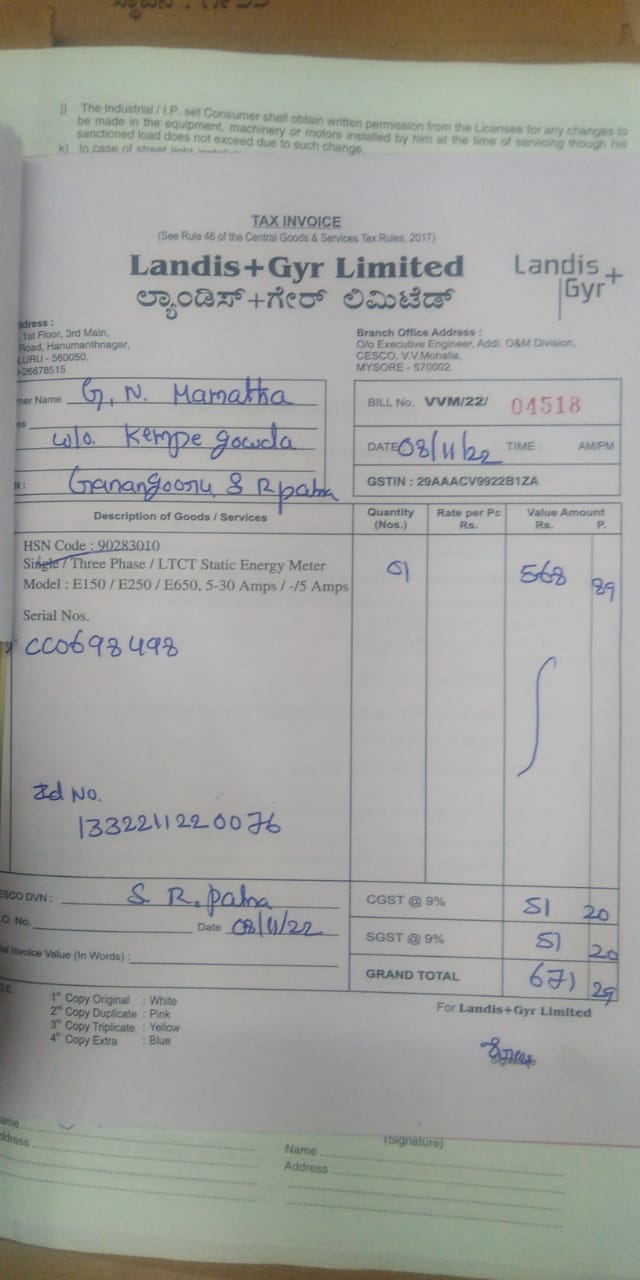 j) The Industrial / I.P. set Consumer shall obtain written permission from the Licensee for any changes to
be made in the equipment, machinery or motors installed by him at the time of servicing though his
sanctioned load does not exceed due to such change.
k) In case of street light
TAX INVOICE
(See Rule 46 of the Central Goods & Services Tax Rules, 2017)
Landis+Gyr Limited
ಲ್ಯಾಂಡಿಸ್+ಗೇರ್ ಲಿಮಿಟೆಡ್
Landis+
Gyr
ddress :
1st Floor, 3rd Main,
Road, Hanumanthnagar,
LURU - 560050.
-26678515
Branch Office Address :
O/o Executive Engineer, Addl. O&M Division,
CESCO, V.V.Mohalla,
MYSORE - 570002.
mer Name G. N. Mamatha
ss w/o. Kempe gowda
N : Ganangooru S R patna
BILL No. VVM/22/ 04518
DATE 08/11/22 TIME : AM/PM
GSTIN : 29AAACV9922B1ZA
Description of Goods / Services Quantity (Nos.) Rate per Pc Rs. Value Amount Rs. P.
HSN Code : 90283010
Single / Three Phase / LTCT Static Energy Meter 01 568 89
Model : E150 / E250 / E650, 5-30 Amps / -/5 Amps
Serial Nos.
CC0698498
Id No.
1332211220076
ESCO DVN : S R. patna
O. No. Date 08/11/22
al Invoice Value (In Words) :
CGST @ 9% 51 20
SGST @ 9% 51 20
GRAND TOTAL 671 29
For Landis+Gyr Limited
1st Copy Original : White
2nd Copy Duplicate : Pink
3rd Copy Triplicate : Yellow
4th Copy Extra : Blue
ame
ddress
(Signature)
Name
Address